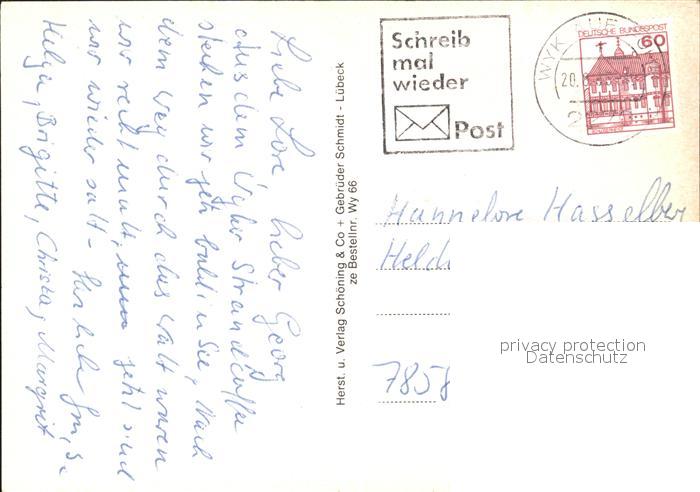 Liebe Lore, lieber Georg
aus dem Wyker Strandcaffee
stehen wir jetzt bald in See, Nach
dem Weg durch das Watt waren
wir recht matt, nun jetzt sind
wir wieder satt - Herzliche
Helga, Brigitte, Christa, Margret
Herst. u. Verlag Schöning & Co + Gebrüder Schmidt - Lübeck
ze Bestellnr. Wy 66
Schreib
mal
wieder
Post
WYK AUF
20.
DEUTSCHE BUNDESPOST
60
Hannelore Hasselber
Held
7858
privacy protection
Datenschutz